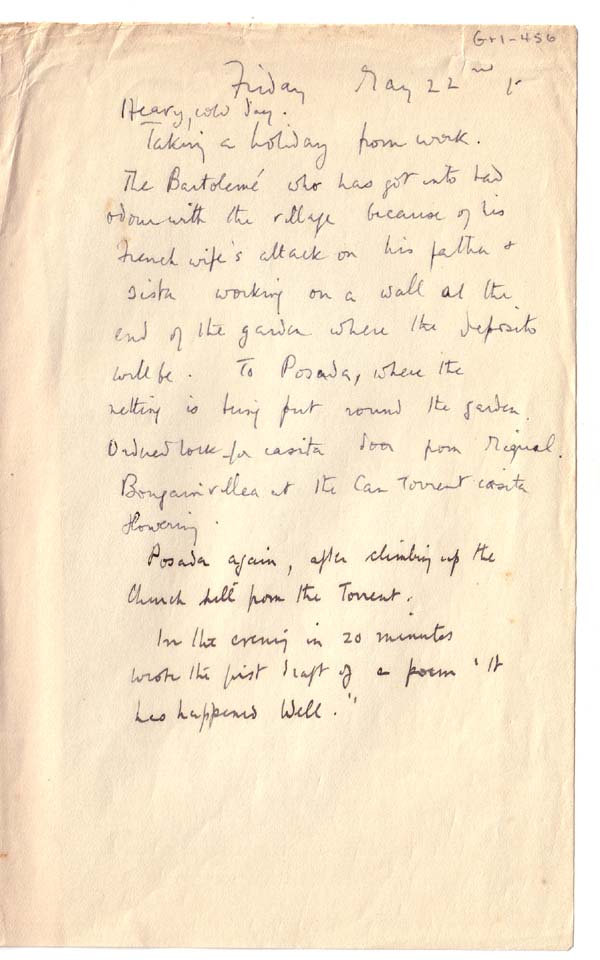 Gr1-456
Friday May 22nd
Heavy, cold day.
Taking a holiday from work.
The Bartolemé who has got into bad
odour with the village because of his
French wife's attack on his father &
sister working on a wall at the
end of the garden where the deposito
will be. To Posada, where the
netting is being put round the garden.
Ordered lock for casita door from Miguel.
Bougainvillea at the Can Torrent casita
flowering.
Posada again, after climbing up the
Church hill from the Torrent.
In the evening in 20 minutes
wrote the first draft of a poem 'It
has happened Well."